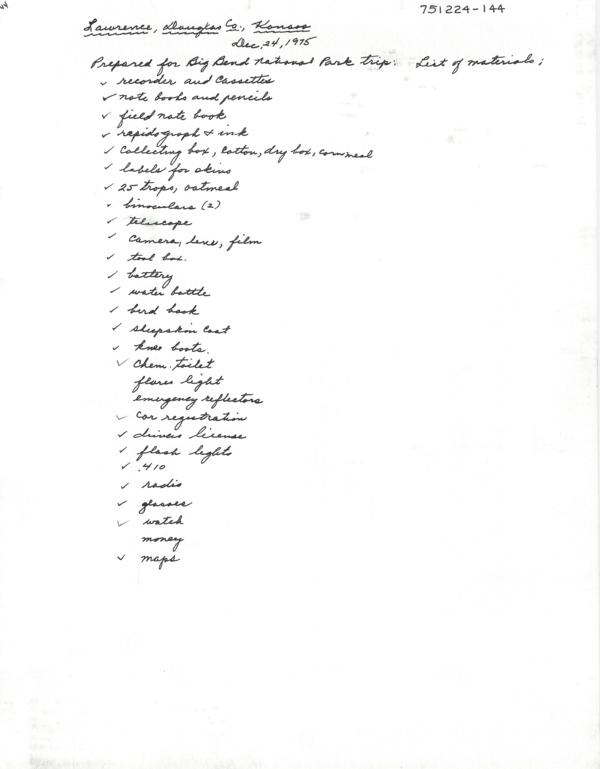 751224-144
Lawrence, Douglas Co., Kansas
Dec, 24, 1975
Prepared for Big Bend National Park trip: List of materials;
✓ recorder and cassettes
✓ note books and pencils
✓ field note book
✓ rapidograph + ink
✓ Collecting box, Cotton, dry box, cornmeal
✓ labels for skins
✓ 25 traps, oatmeal
✓ binoculars (2)
✓ telescope
✓ camera, lens, film
✓ tool box.
✓ battery
✓ water bottle
✓ bird book
✓ sheepskin coat
✓ knee boots.
✓ Chem. toilet
flares light
emergency reflectors
✓ Car registration
✓ drivers license
✓ flash lights
✓ .410
✓ radio
✓ glasses
✓ watch
money
✓ maps